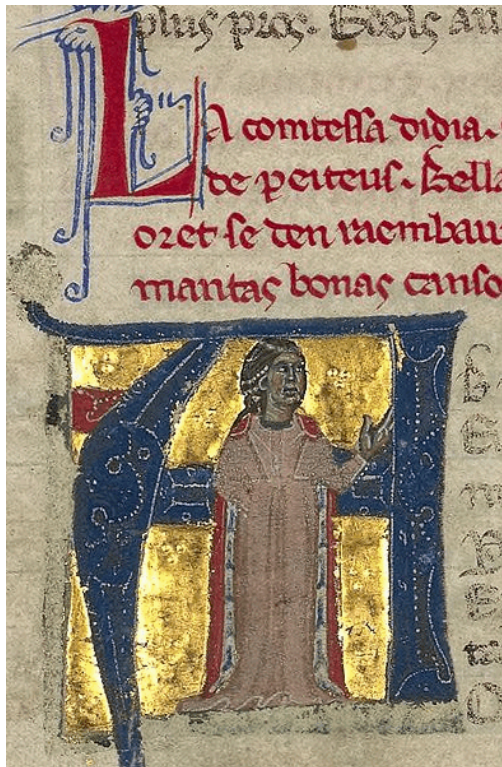 plus pros. Edels au
LA comtessa didia.
de peiteus. Bella
oret se den raembau
mantas bonas canso
A